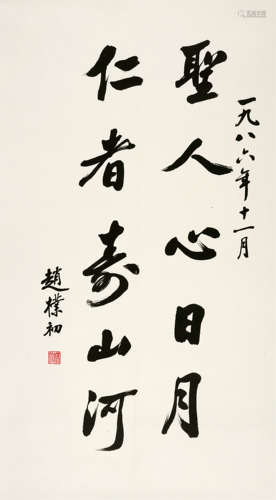 一九八六年十一月
聖人心日月
仁者寿山河
趙樸初